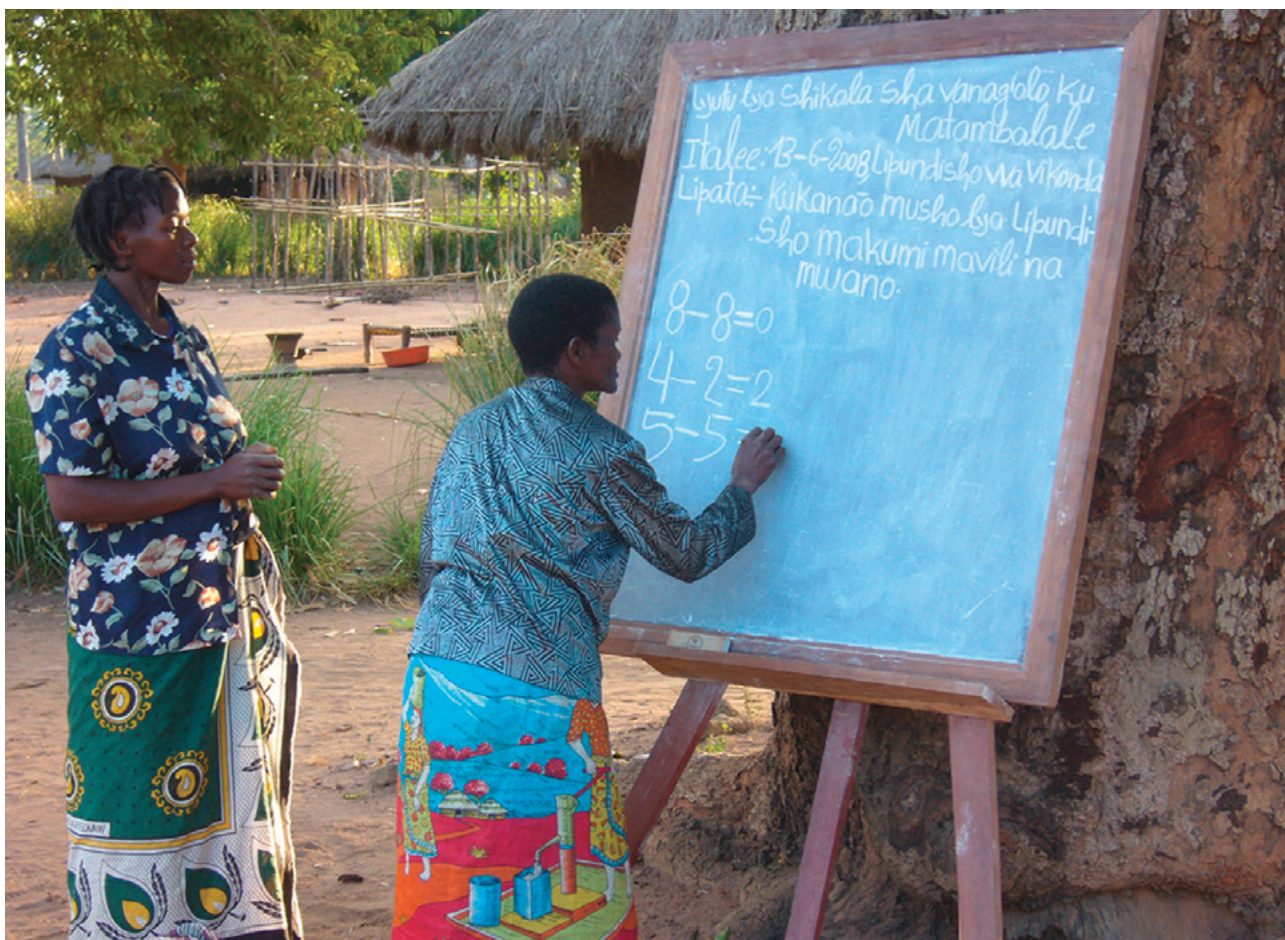 Lyutu lya shikola sha vanagòlò ku
Matambalale
Italee: 13-6-2008 Lipundisho wa Vikonda
Lipata:- Kukanaò musho lya Lipundi-
sho makumi mavili na
mwano.
8-8=0
4-2=2
5-5=